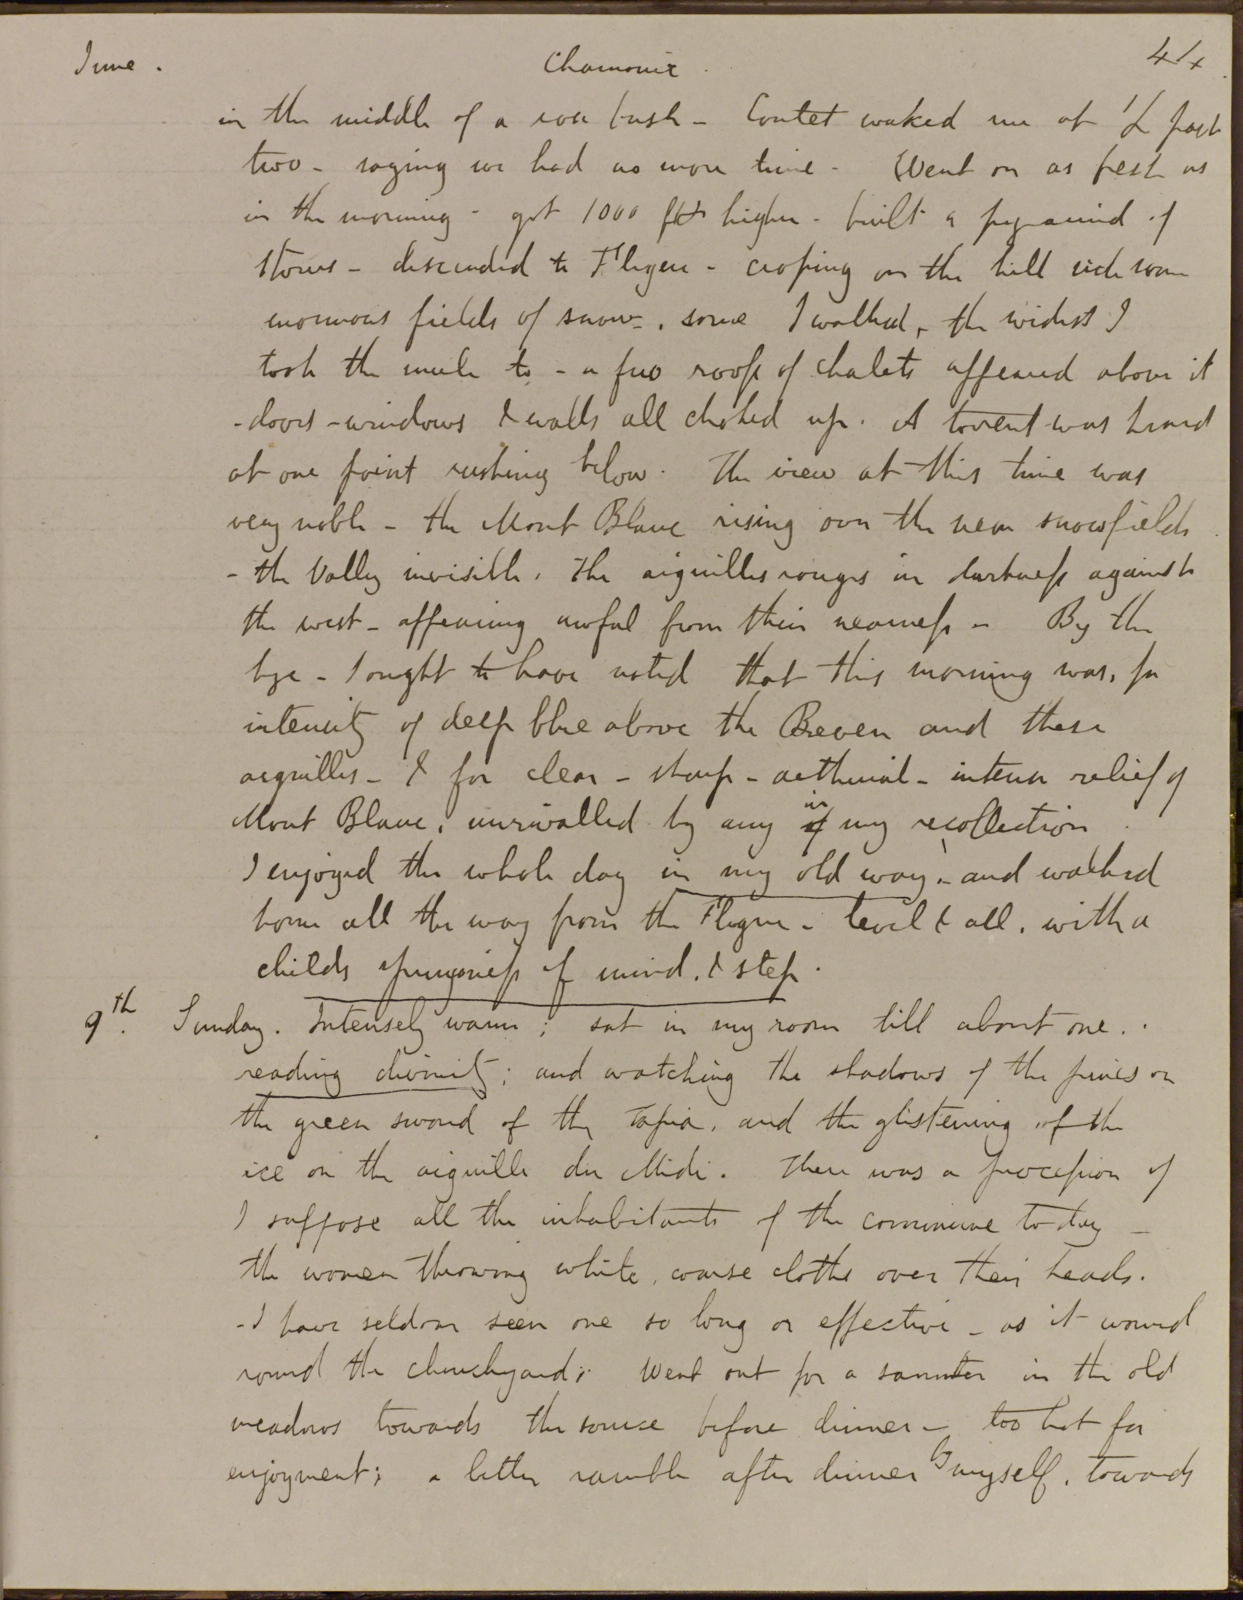 June. Chamonix. 41
in the middle of a rose bush - Coutet waked me at ½ past
two - saying we had no more time - Went on as fresh as
in the morning - got 1000 feet higher - built a pyramid of
stones - descended to Flegere - crossing on the hill side some
enormous fields of snow, some I walked, the widest I
took the mule to - a few roofs of chalets appeared above it
- doors - windows & walls all choked up. A torrent was heard
at one point rushing below. The view at this time was
very noble - the Mont Blanc rising over the near snowfields
- the valley invisible, the aiguilles rouges in darkness against
the west - appearing awful from their nearness - By the
bye - I ought to have noted that this morning was, for
intensity of deep blue above the Breven and these
aiguilles - & for clear - sharp - aetherial - intense relief of
Mont Blanc, unrivalled by any in my recollection.
I enjoyed the whole day in my old way, - and walked
home all the way from the Flegere - level & all, with a
childs springiness of mind, & step.
9th. Sunday. Intensely warm; sat in my room till about one..
reading divinity; and watching the shadows of the pines on
the green sward of the Tapia, and the glistening of the
ice on the aiguille du Midi. There was a procession of
I suppose all the inhabitants of the commune today -
the women throwing white, coarse cloths over their heads.
- I have seldom seen one so long or effective - as it wound
round the churchyard; Went out for a saunter in the old
meadows towards the source before dinner - too hot for
enjoyment; a better ramble after dinner by myself, towards